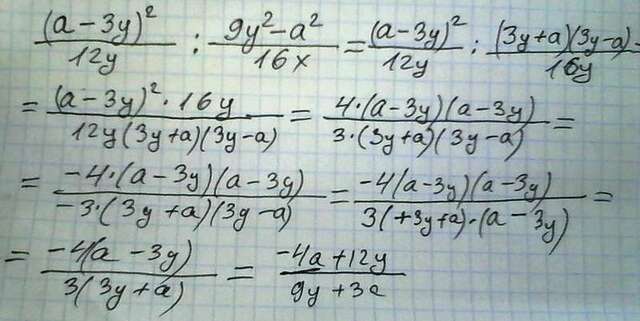 (a-3y)²/12y : 9y²-a²/16x = (a-3y)²/12y : (3y+a)(3y-a)/16y =
= (a-3y)²·16y/12y(3y+a)(3y-a) = 4·(a-3y)(a-3y)/3·(3y+a)(3y-a) =
= -4·(a-3y)(a-3y)/-3·(3y+a)(3y-a) = -4(a-3y)(a-3y)/3(+3y+a)·(a-3y) =
= -4(a-3y)/3(3y+a) = -4a+12y/9y+3a